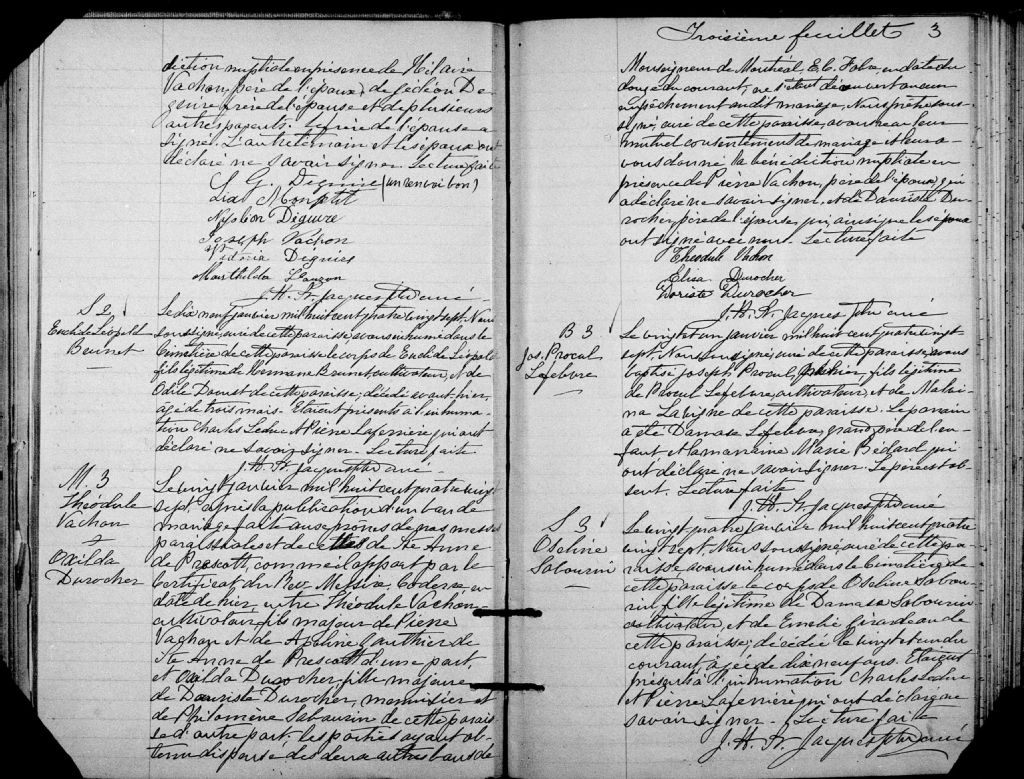 diction nuptiale en présence de Hilaire
Vachon, père de l'époux, de Gédéon De
guire, frère de l'épouse et de plusieurs
autres parents. Le frère de l'épouse a
signé. L'autre témoin et les époux ont
déclaré ne savoir signer. Lecture faite
(un renvoi bon)
S G Deguire
Napoléon Deguire
Joseph Vachon
Mathilda Lauzon
J. H. St Jacques Ptre curé
S 2
Euclide Léopold
Brunet
Le dix neuf janvier mil huit cent quatre vingt sept. Nous
soussigné, curé de cette paroisse, avons inhumé dans le
cimetière de cette paroisse le corps de Euclide Léopold
fils légitime de Hermane Brunet, cultivateur, et de
Odile de cette paroisse; décédé avant hier,
agé de trois mois. Etaient présents à l'inhuma
tion Charles Leduc et Pierre Laferrière qui ont
déclaré ne savoir signer. Lecture faite
J. H. St Jacques Ptre curé
M. 3
Théodule
Vachon
+
Oxilda
Durocher
Le vingt janvier mil huit cent quatre vingt
sept, après la publication d'un ban de
mariage faite aux prônes de nos messes
paroissiales et de celles de Ste Anne
de Prescott, comme il appert par le
certificat du Rev Messire en
date de hier, entre Théodule Vachon
cultivateur, fils majeur de Pierre
Vachon et de Apoline Gauthier de
Ste Anne de Prescott d'une part,
et Oxilda Durocher, fille majeure
de Dauriste Durocher, menuisier et
de Philomène Sabourin de cette parois
se d'autre part, les parties ayant ob-
tenu dispense des deux autres bans de
Troisième feuillet 3
Monseigneur de Montréal E. C. Fabre, en date du
douze du courant, ne s'étant découvert aucun
empêchement au dit mariage, Nous prêtre sous-
signé, curé de cette paroisse, avons reçu leur
mutuel consentement de mariage et leur a-
vons donné la bénédiction nuptiale en
présence de Pierre Vachon, père de l'époux, qui
a déclaré ne savoir signer, et de Dauriste Du-
rocher, père de l'épouse, qui ainsi que les époux
ont signé avec nous. Lecture faite
Théodule Vachon
Elisa Durocher
Doriste Durocher
J. H. St Jacques ptre curé
B 3
Jos. Procul
Lefebvre
Le vingt et un janvier mil huit cent quatre vingt
sept. Nous soussigné, curé de cette paroisse, avons
baptisé Joseph Procul, né hier, fils légitime
de Procul Lefebvre, cultivateur, et de
Lavigne de cette paroisse. Le parrain
a été Damase Lefebvre, grand père de l'en-
fant et la marraine Marie Bédard qui
ont déclaré ne savoir signer. Le père est ab
sent. Lecture faite
J. H. St Jacques Ptre curé
S 3
Oseline
Sabourin
Le vingt quatre janvier mil huit cent quatre
vingt sept. Nous soussigné curé de cette pa-
roisse avons inhumé dans le cimetière de
cette paroisse le corps de Oseline Sabou-
rin fille légitime de Damase Sabourin
cultivateur, et de Girardeau de
cette paroisse; décédée le vingt et un du
courant, agée de dix neuf ans. Etaient
présents à l'inhumation Charles Leduc
et Pierre Laferrière qui ont déclaré ne
savoir signer. Lecture faite
J. H. St Jacques ptre curé